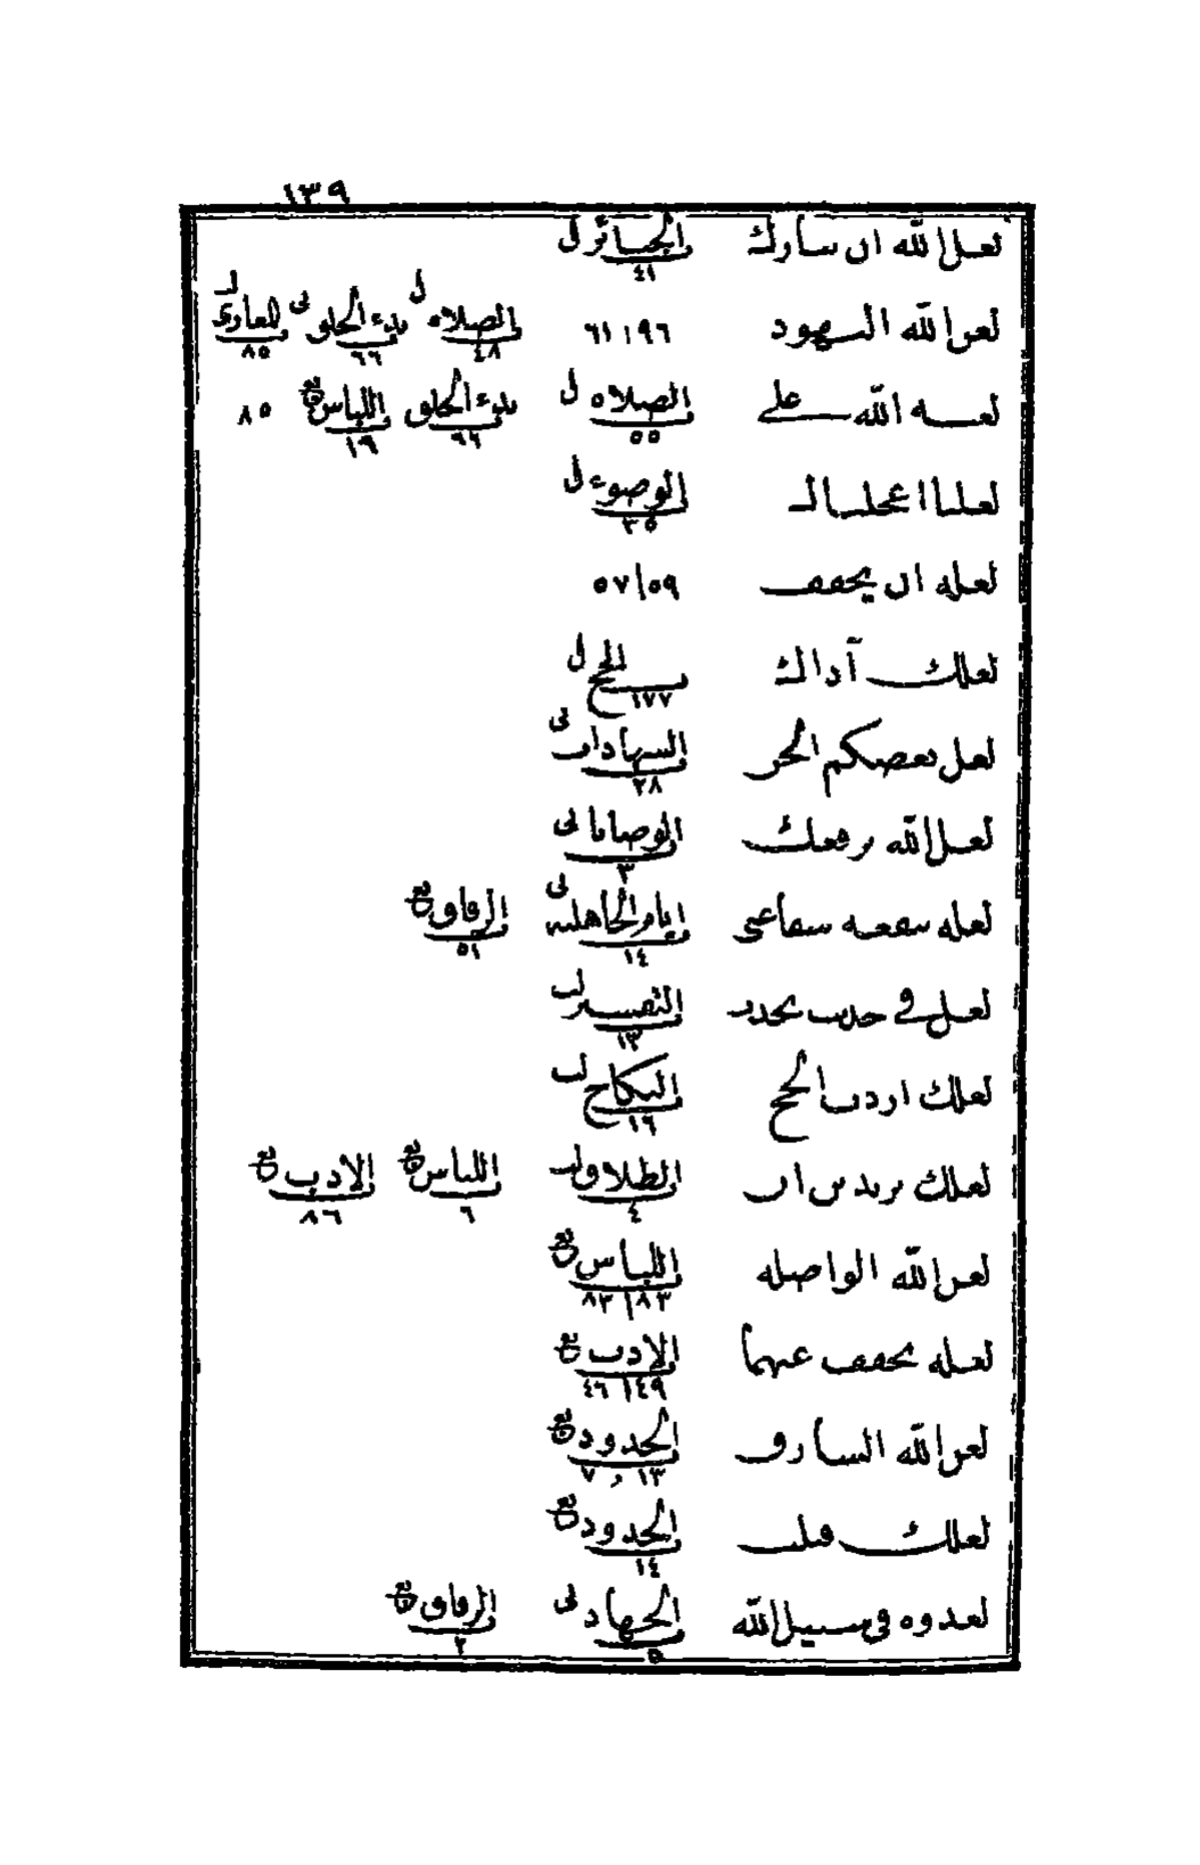 ١٣٩
لعل الله ان سارك الجنائز ل ٤١
لعن الله اليهود ٦١ / ٩٦ الصلاه ل ٤٨ بدء الخلق لى ٦٦ المغازى ٨٥
لعنه الله على الصلاه ل ٥٥ بدء الخلق ٦٦ اللباس بع ١٩ ٨٥
لعلنا اعجلنا الوضوء ل ٣٥
لعله ان يخفف ٥٧ / ٥٩
لعلك آذاك الحج ل ١٧٧
لعل بعضكم الحر الشهادات لى ٢٨
لعل الله يرفعك الوصايا لى ٣
لعله تنفعه شفاعتى ايام الجاهليه لى ١٤ الرقاق بع ٥١
لعل فى حديث التفسير لب ١٣
لعلك اردت الحج النكاح لب ١٦
لعلك تريدين ان الطلاق لب ٤ اللباس بع ٦ الادب بع ٨٦
لعن الله الواصله اللباس بع ٨٣ / ٨٣
لعله يخفف عنهما الادب بع ٤٦ / ٤٩
لعن الله السارق الحدود بع ٧ , ١٣
لعلك قبلت الحدود بع ١٤
لغدوه فى سبيل الله الجهاد لى ٥ الرقاق بع ٢